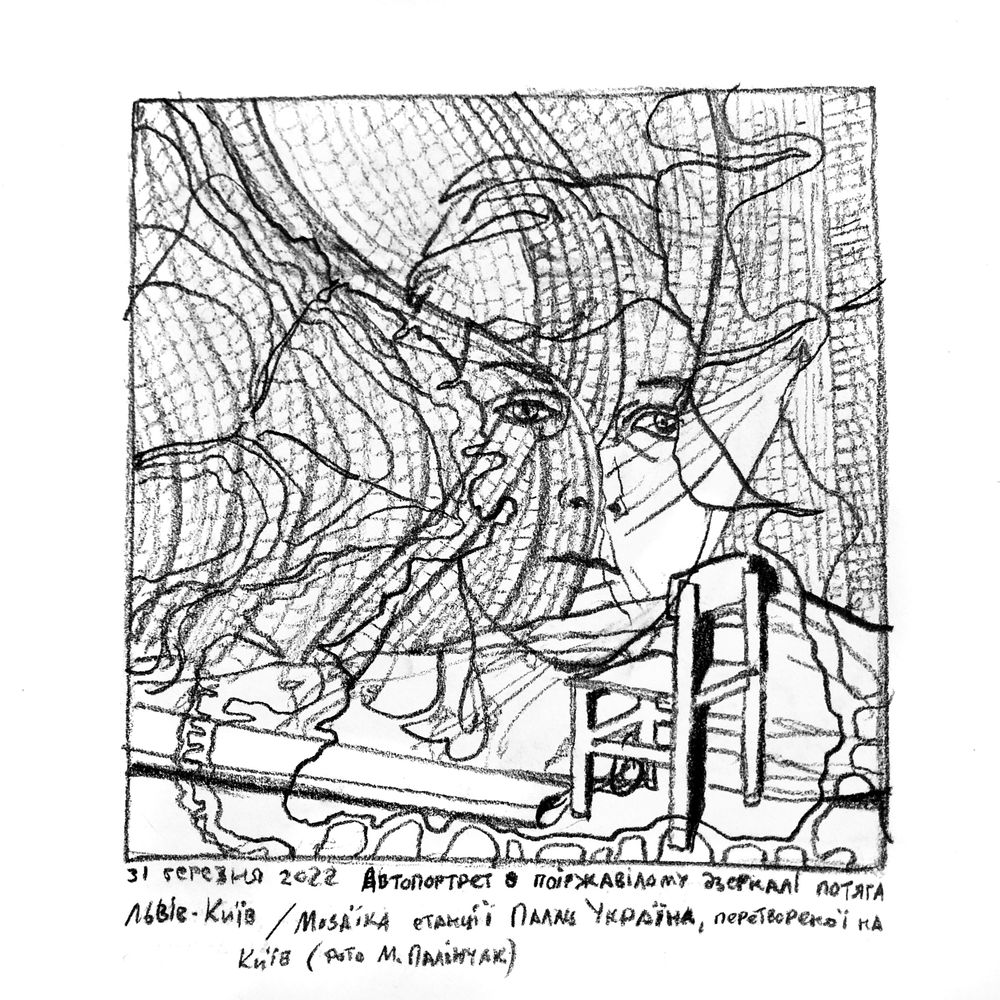 31 березня 2022 Автопортрет в поіржавілому дзеркалі потяга
Львів-Київ / Мозаїка станції Палац Україна, перетвореної на
Київ (фото М. Палінчак)